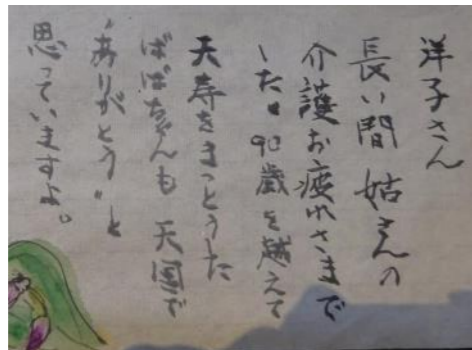 洋子さん
長い間 姑さんの
介護お疲れさまで
した。90歳を越えて
天寿をまっとうした
ばばちゃんも 天国で
“ありがとう”と
思っていますよ。